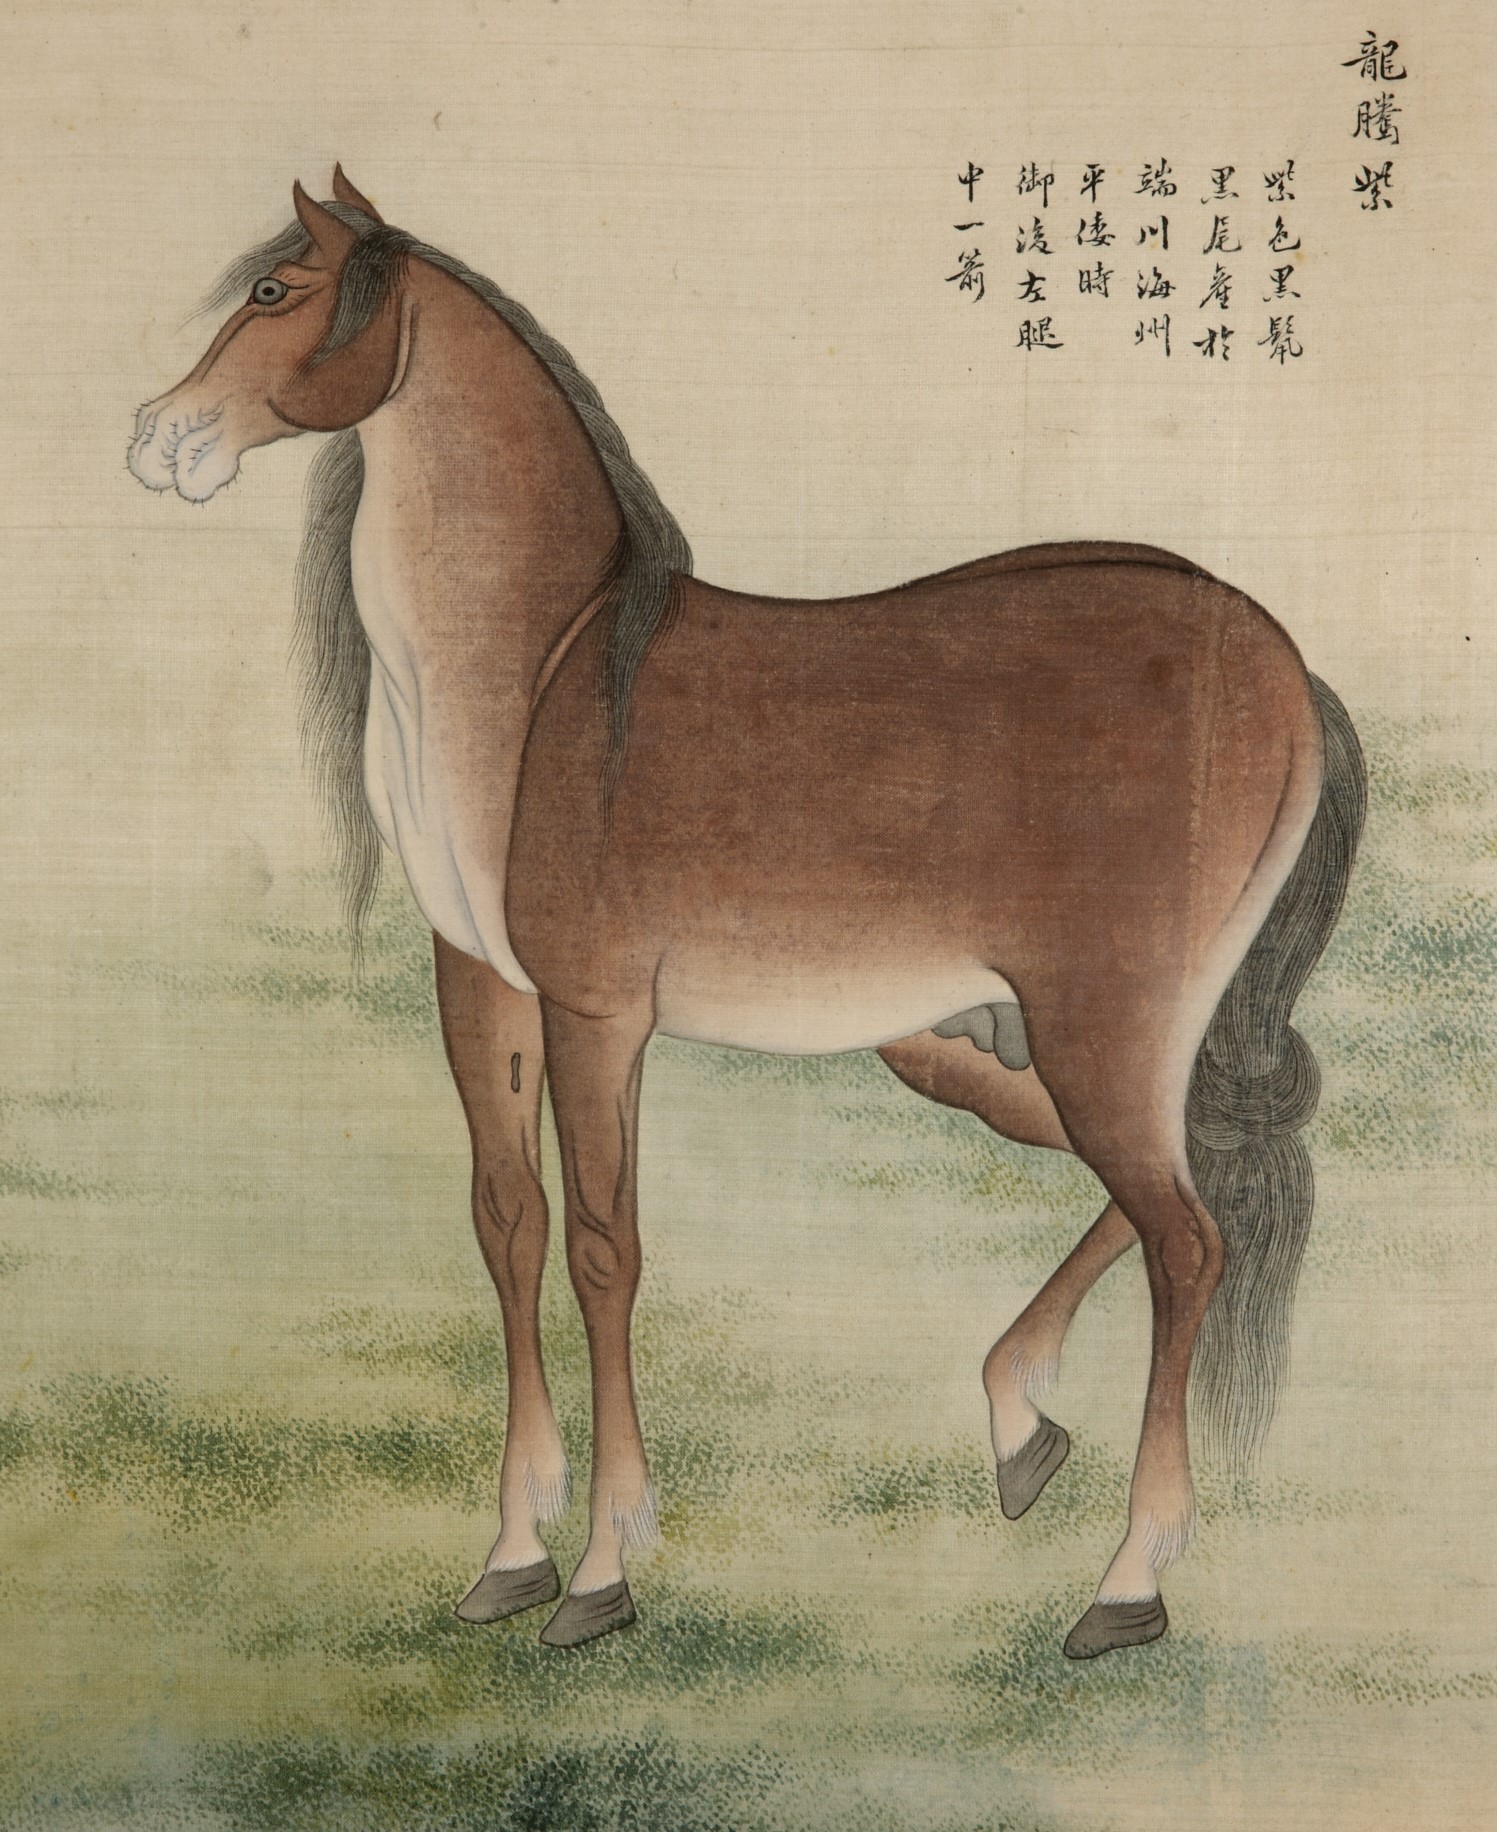 龍騰紫
紫色黑鬣
黑尾産於
端川海州
平倭時
御後左腿
中一箭